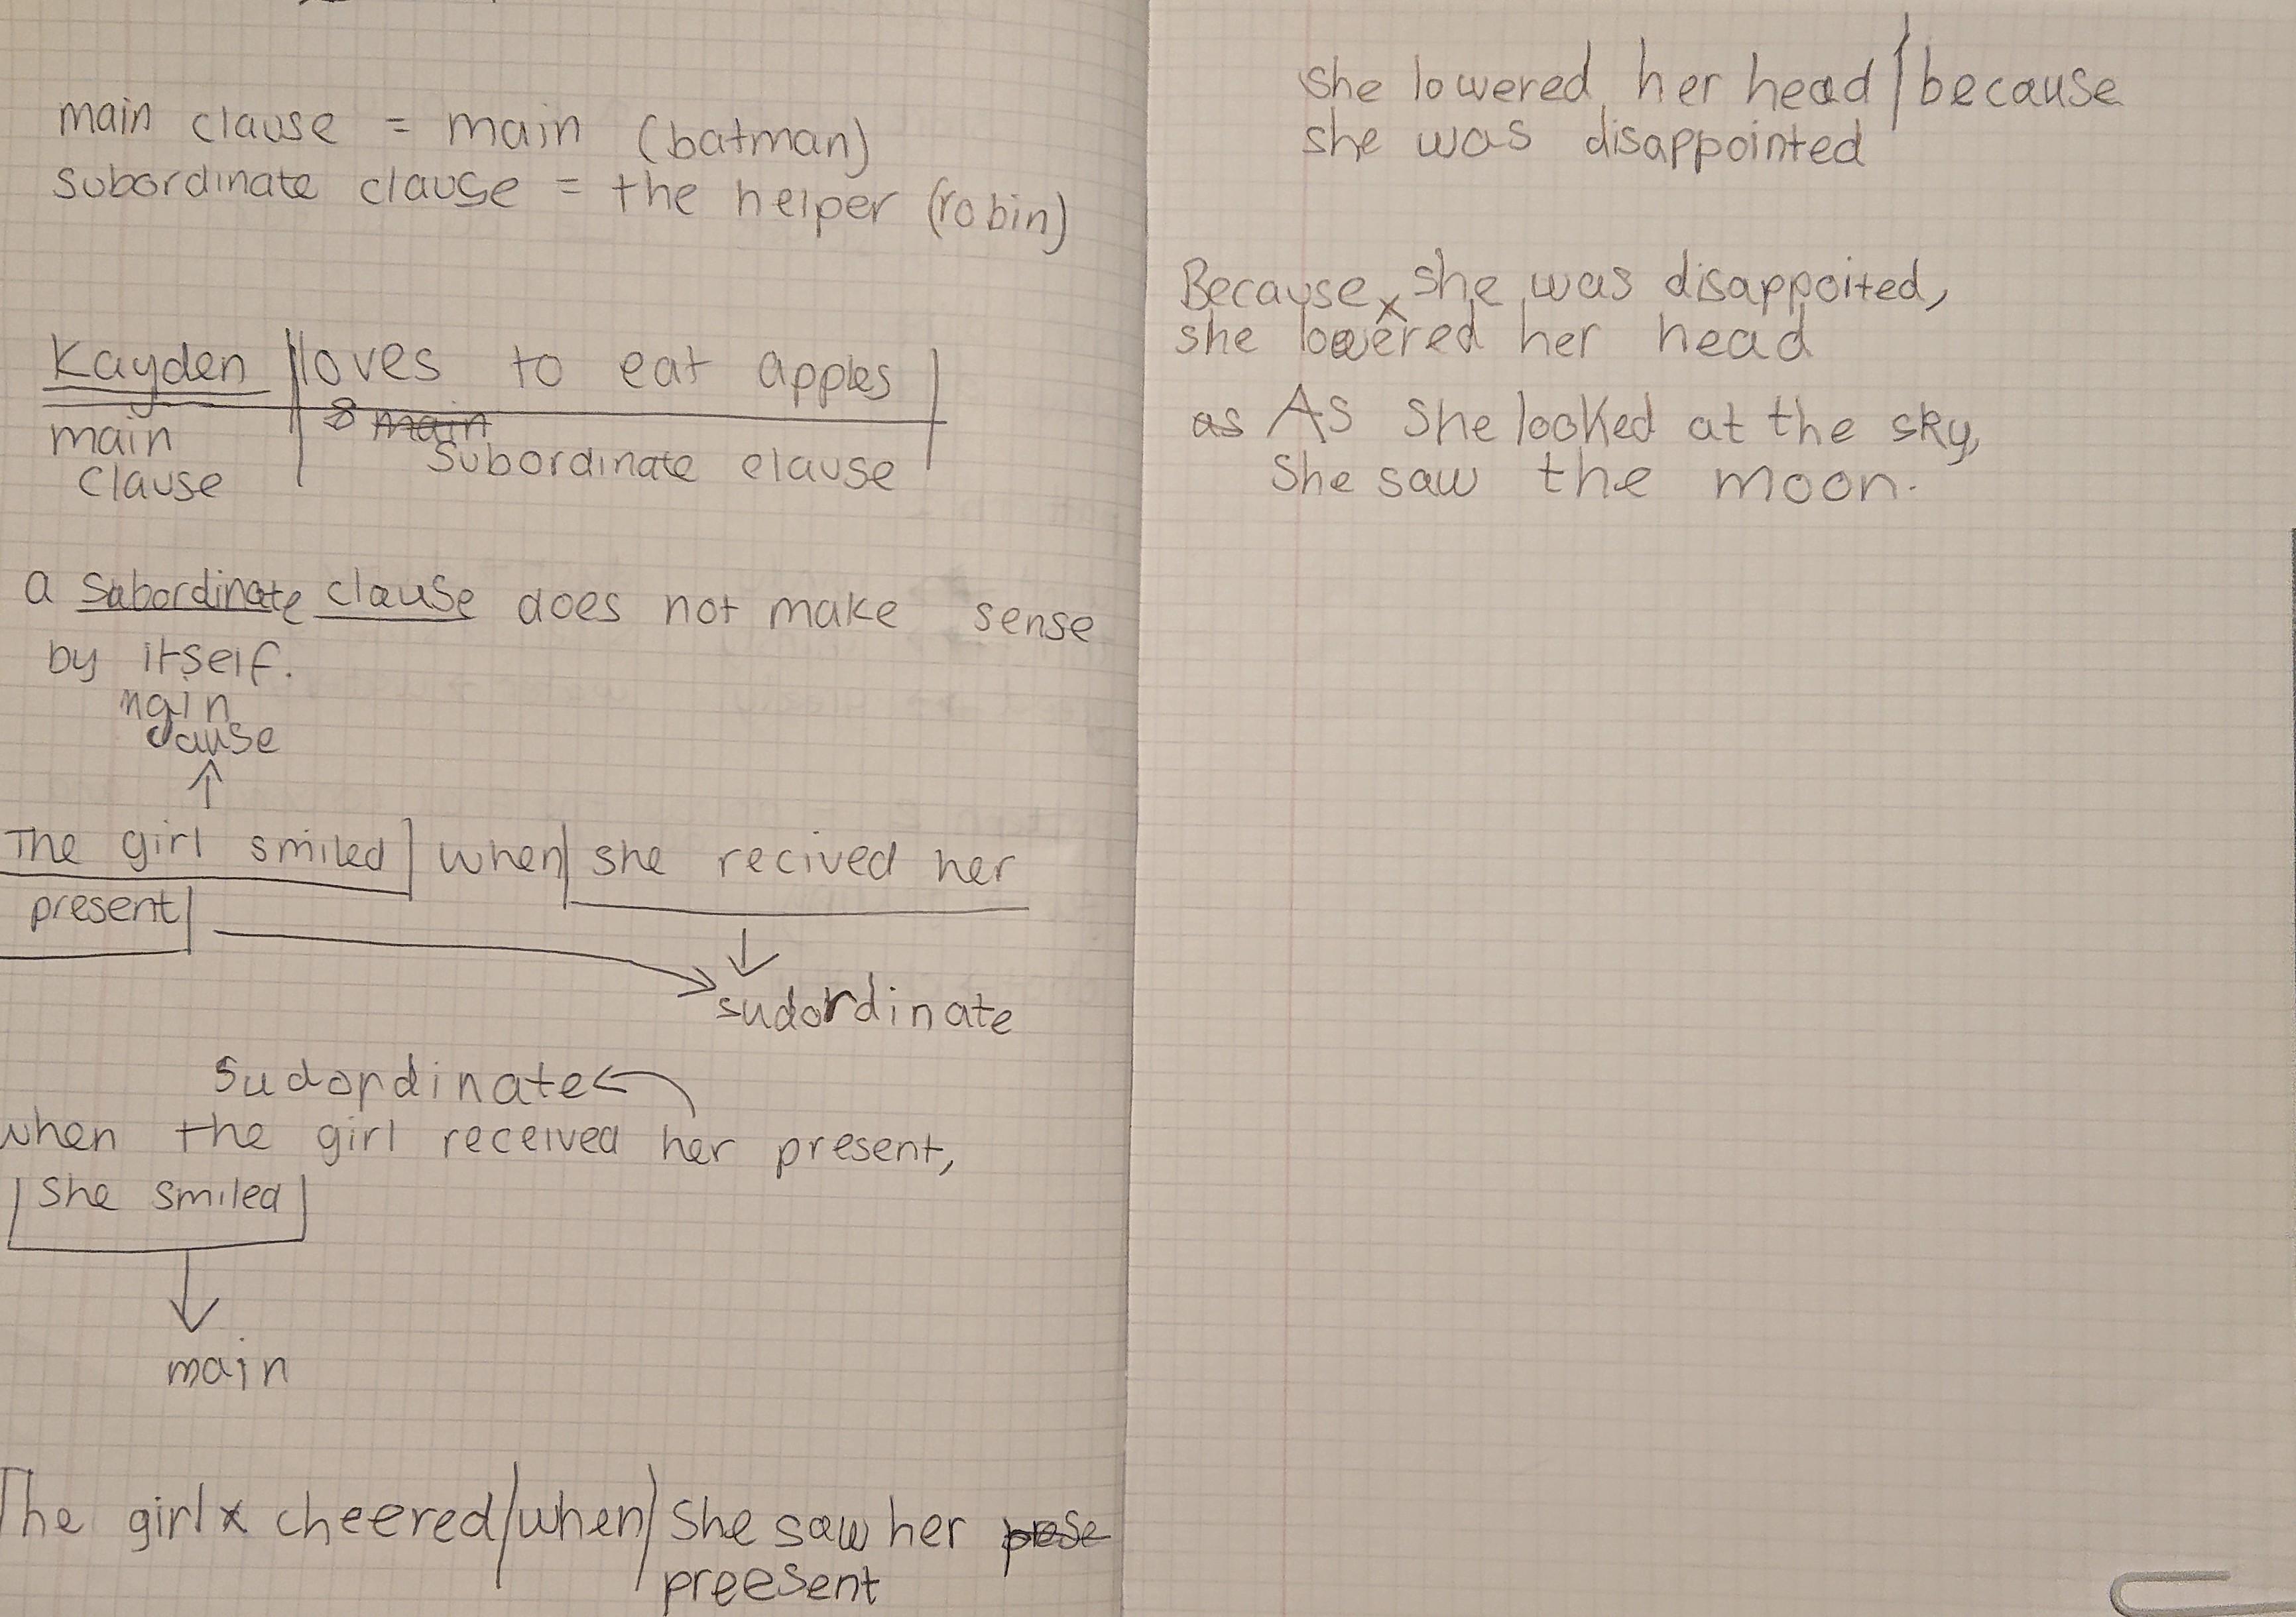 main clause = main (batman)
subordinate clause = the helper (robin)
Kayden loves to eat apples
main
main subordinate clause
clause
a subordinate clause does not make sense
by itself.
main
clause
The girl smiled when she recived her
present
sudordinate
sudordinate
when the girl received her present,
she smiled
main
The girl x cheered when she saw her prese
preesent
she lowered her head because
she was disappointed
Because x she was disappoited,
she lowered her head
as As she looked at the sky,
she saw the moon.